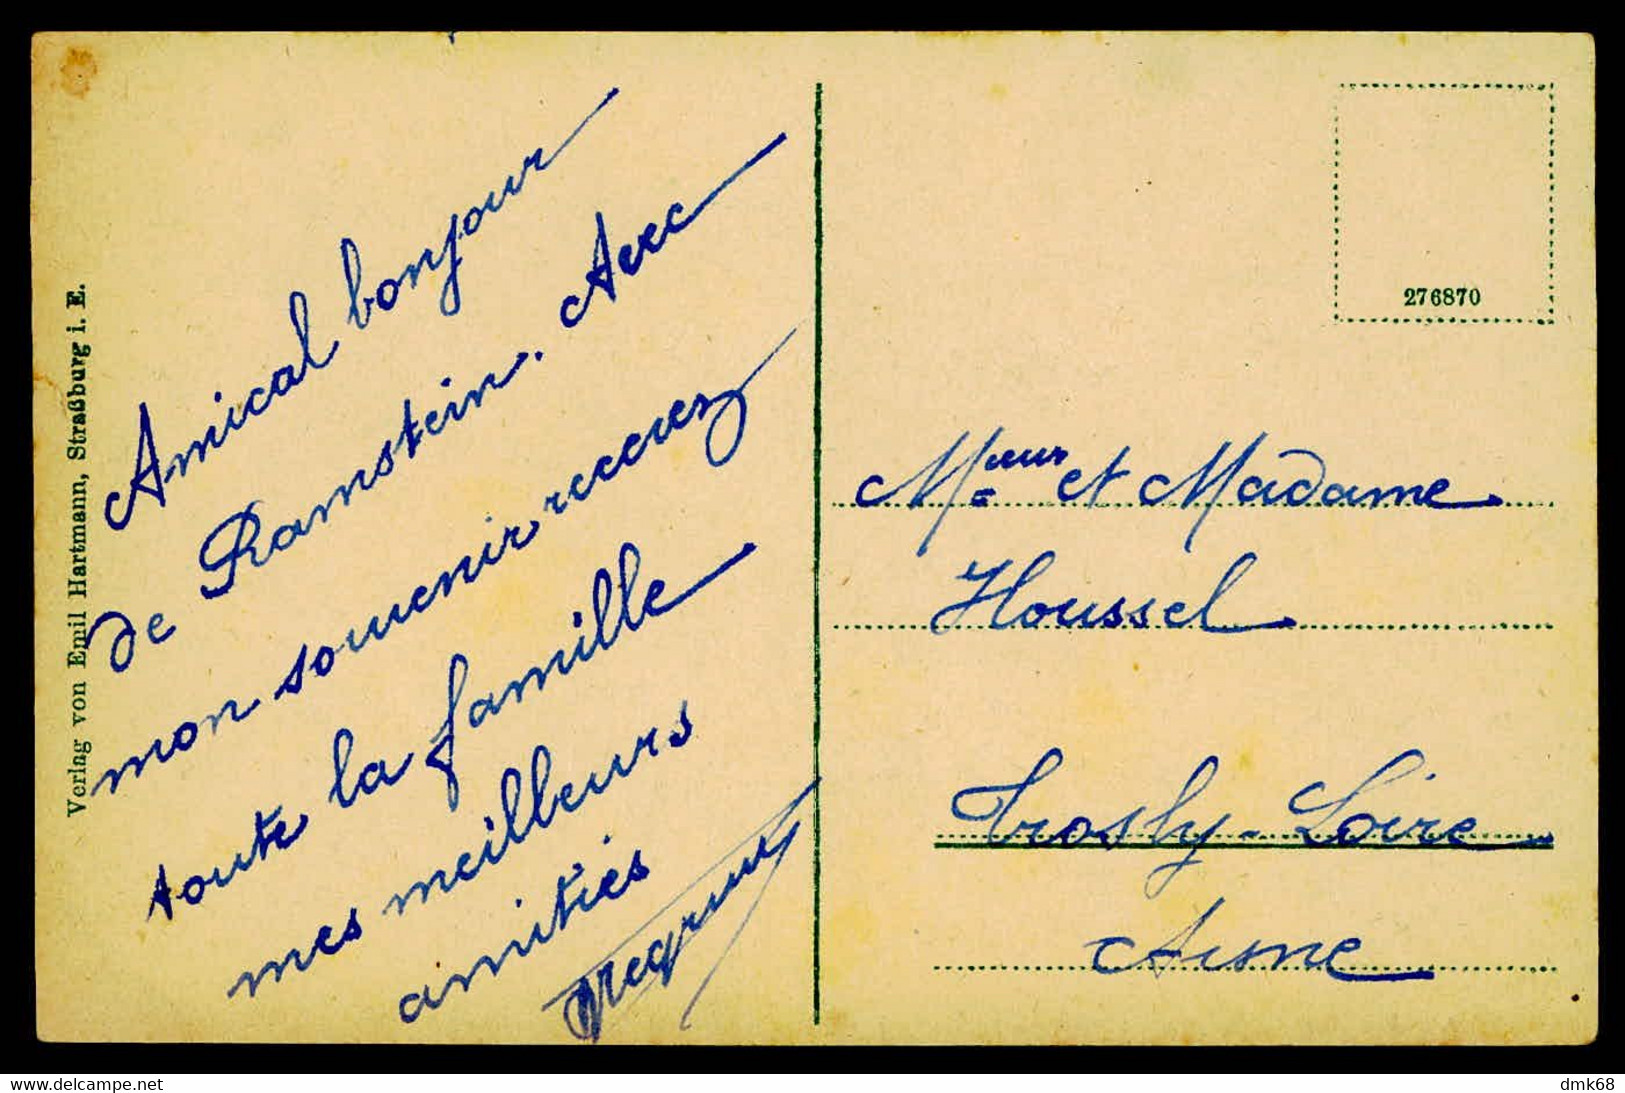 Amical bonjour
de Ramstein. Avec
mon souvenir recevez
toute la famille
mes meilleurs
amitiés
Verlag von Emil Hartmann, Straßburg i. E.
276870
Mr et Madame
Houssel
Trosly-Loire
Aisne
www.delcampe.net
dmk68